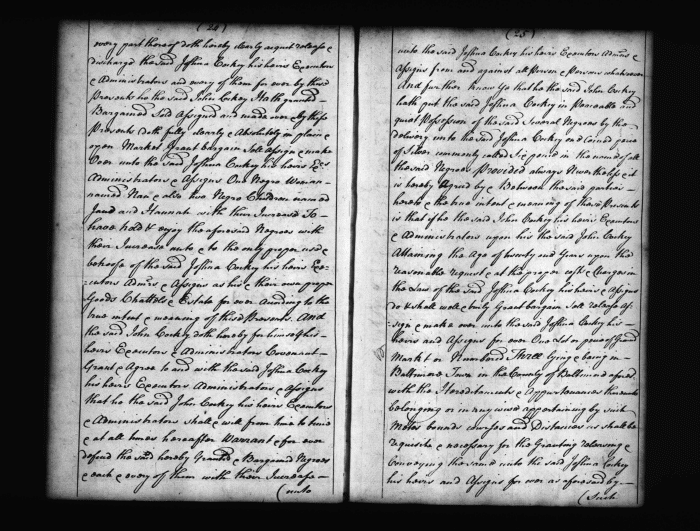 (24)
every part thereof doth hereby clearly acquit release &
discharge the said Joshua Cockey his heirs Executors
& Administrators and every of them for ever by these
Presents he the said John Cockey Hath granted
Bargained Sold Assigned and made over & by these
Presents doth fully clearly & Absolutely in plain &
open Market Grant bargain Sell Assign & make
Over unto the said Joshua Cockey his heirs Exrs
Administrators & Assigns One Negro Woman
named Nan & also two Negro Children named
and Hannah with their Increase To
have hold & enjoy the aforesaid Negroes with
their Increase unto & to the only proper use &
behoofe of the said Joshua Cockey his heirs Exe-
cutors Admrs & Assigns as his & their own proper
Goods Chattels & Estate for ever according to the
true intent & meaning of these Presents. And
the said John Cockey doth hereby for himself his
heirs Executors & Administrators Covenant
Grant & Agree to and with the said Joshua Cockey
his heirs Executors Administrators & Assigns
that he the said John Cockey his heirs Executors
& Administrators Shall & will from time to time
& at all times hereafter Warrant & for ever
defend the said hereby Granted & Bargained Negroes
& each & every of them with their Increase
(unto
(25)
unto the said Joshua Cockey his heirs Executors Admrs &
Assigns from and against all Person & Persons whatsoever
And further Know Ye that he the said John Cockey
hath put the said Joshua Cockey in Peaceable and
quiet Possession of the said Several Negroes by the
delivery unto the said Joshua Cockey one coined piece
of Silver commonly called Sixpence in the name of all
the said Negroes Provided always Nevertheless & it
is hereby Agreed by & Between the said parties
hereto & the true intent & meaning of these Presents
is that if he the said John Cockey his heirs Executors
& Administrators upon his the said John Cockey
Attaining the Age of twenty one Years upon the
reasonable request & at the proper cost & Charges in
the Law of the said Joshua Cockey his heirs & Assigns
do & shall well & truly Grant bargain Sell release As-
sign & make over unto the said Joshua Cockey his
heirs and Assigns for ever One Lot or peice of Ground
Markt or Numbered Three lying & being in
Baltimore Town in the County of Baltimore aforesd
with the Hereditaments & Appurtenances thereunto
belonging or in any wise appertaining by such
Metes bounds courses and Distances as shall be
requisite & necessary for the Granting releasing &
Conveying the same unto the said Joshua Cockey
his heirs and Assigns for ever as aforesaid by
(Such